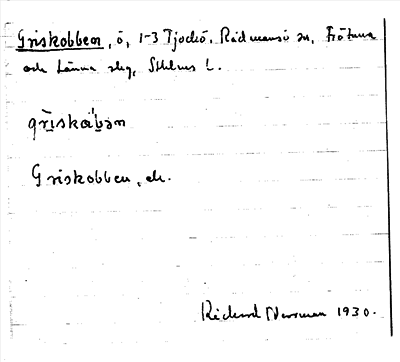 Griskobben, ö, 1-3 Tjockö. Rådmansö sn, Frötuna
och Länna skg, Sthlms l.
griskåb̥ən
Griskobben, ek.
Rickard 1930.